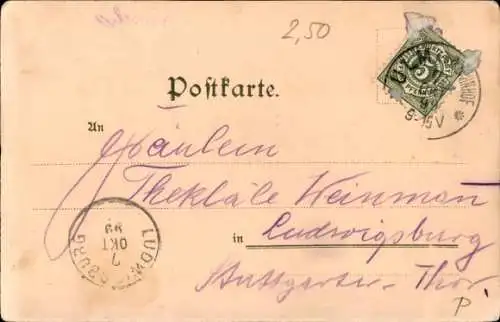 2,50
Postkarte.
ULM
5
9-10V
An
Fräulein
Thekläle Weinman
in Ludwigsburg
Stuttgarter-Thor
LUDWIGSBURG
7
OKT
99
P